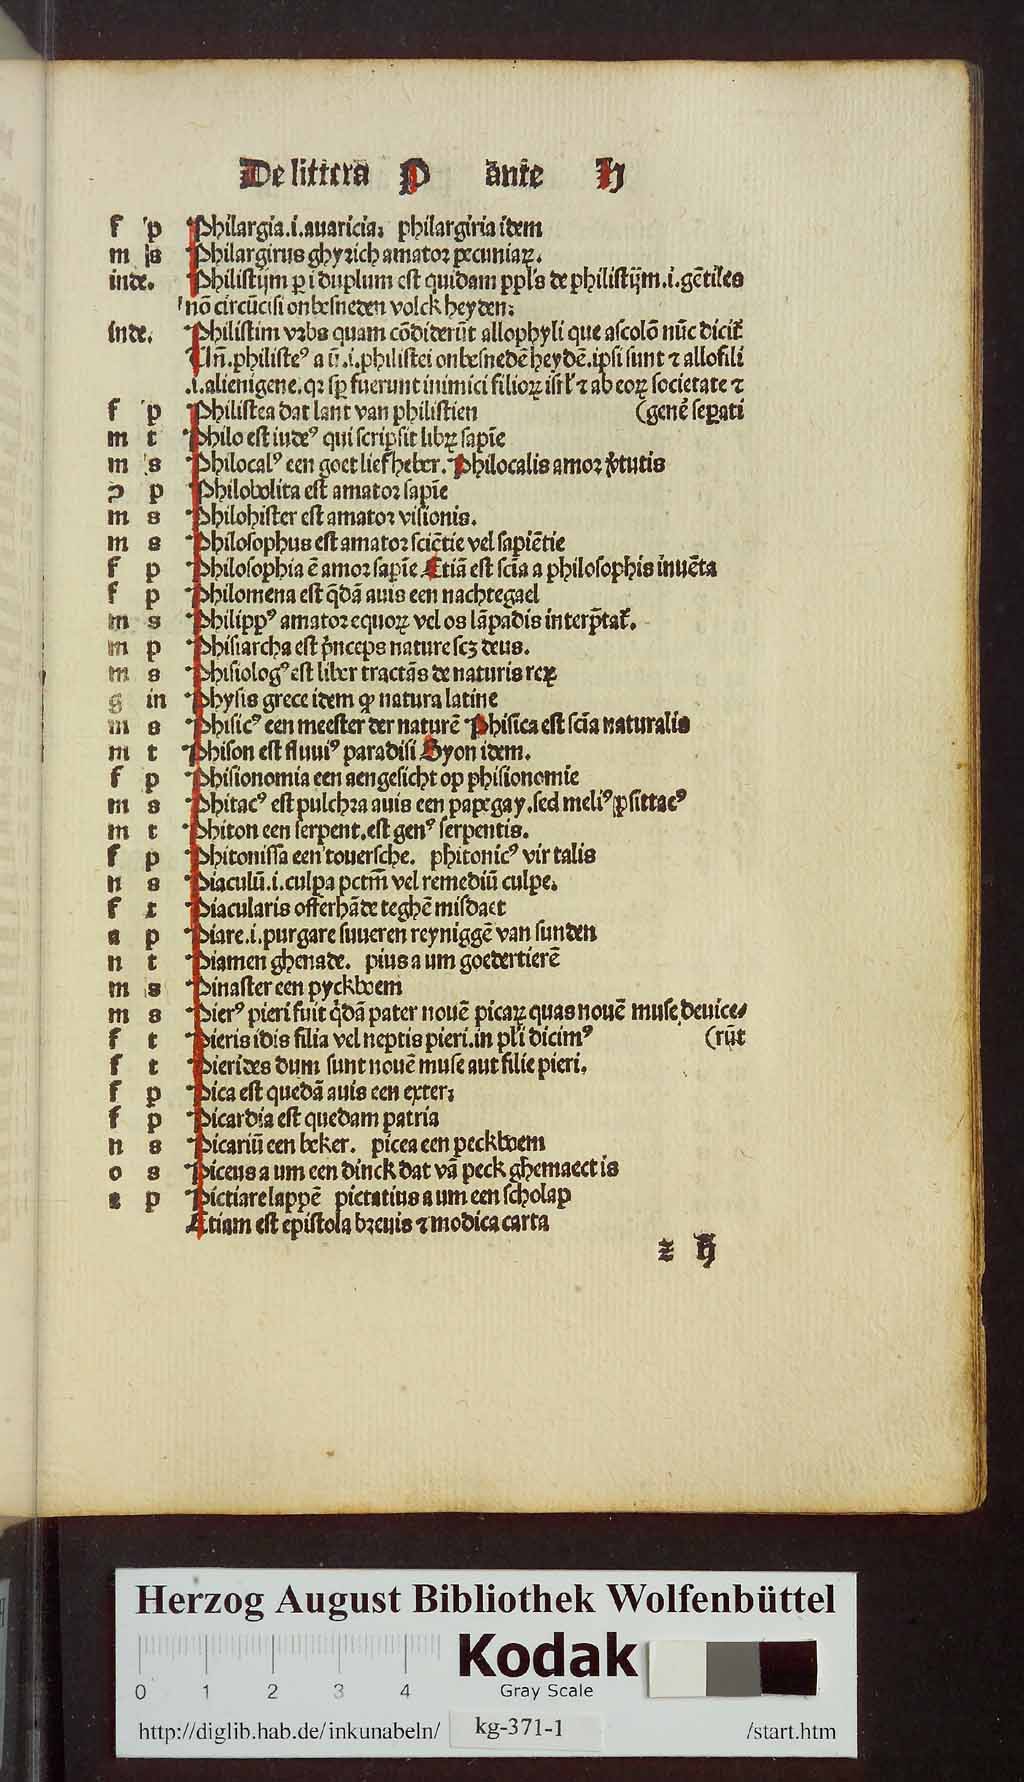 De littera P ante H
f p Philargia.i.auaricia; philargiria idem
m s Philargirus ghyrich amator pecuniaꝝ.
inde. Philistijm p i duplum est quidam ppl's de philistijm.i.gētiles
nō circūcisi onbesneden volck heyden;
inde. Philistim vrbs quam cōdiderūt allophyli que ascolō nūc dicit᷑
Un̄.philisteꝰ a ū.i.philistei onbesnedē heydē.ipsi sunt ⁊ allofili
.i.alienigene.qꝛ sꝑ fuerunt inimici filioꝝ isrl' ⁊ ab eoꝝ societate ⁊
f p Philistea dat lant van philistien (gene seꝑati
m t Philo est iudeꝰ qui scripsit libꝝ sapīe
m s Philocalꝰ een goet liefheber. Philocalis amor v̓tutis
ꝯ p Philobolita est amator sapīe
m s Philohister est amator visionis.
m s Philosophus est amator sciētie vel sapiētie
f p Philosophia ē amor sapīe Etiā est scīa a philosophis inuēta
f p Philomena est q̄dā auis een nachtegael
m s Philippꝰ amator equoꝝ vel os lāpadis interp̄tat᷑.
m p Phisiarcha est p̓nceps nature scꝫ deus.
m s Phisiologꝰ est liber tractās de naturis reꝝ
g in Physis grece idem ꝙ natura latine
m s Phisicꝰ een meester der naturē Phisica est scīa naturalis
m t Phison est fluuiꝰ paradisi Gyon idem.
f p Phisionomia een aengesicht op phisionomie
m s Phitacꝰ est pulchra auis een papegay.sed meliꝰ psittacꝰ
m t Phiton een serpent.est genꝰ serpentis.
f p Phitonissa een touersche. phitonicꝰ vir talis
n s Piaculū.i.culpa pctm̄ vel remediū culpe.
f t Piacularis offerhāde teghē misdaet
a p Piare.i.purgare suueren reyniggē van sunden
n t Piamen ghenade. pius a um goedertierē
m s Pinaster een pyckboem
m s Pierꝰ pieri fuit q̓dā pater nouē picaꝝ quas nouē muse deuice⸗
f t Pieris idis filia vel neptis pieri.in pl'i dicimꝰ (rūt
f t Pierides dum sunt nouē muse aut filie pieri.
f p Pica est quedā auis een exter;
f p Picardia est quedam patria
n s Picariū een beker. picea een peckboem
o s Piceus a um een dinck dat vā peck ghemaect is
a p Pictiare lappē pictatius a um een scholap
Etiam est epistola breuis ⁊ modica carta
z ij
Herzog August Bibliothek Wolfenbüttel
0 1 2 3 4
Kodak
Gray Scale
http://diglib.hab.de/inkunabeln/ kg-371-1 /start.htm